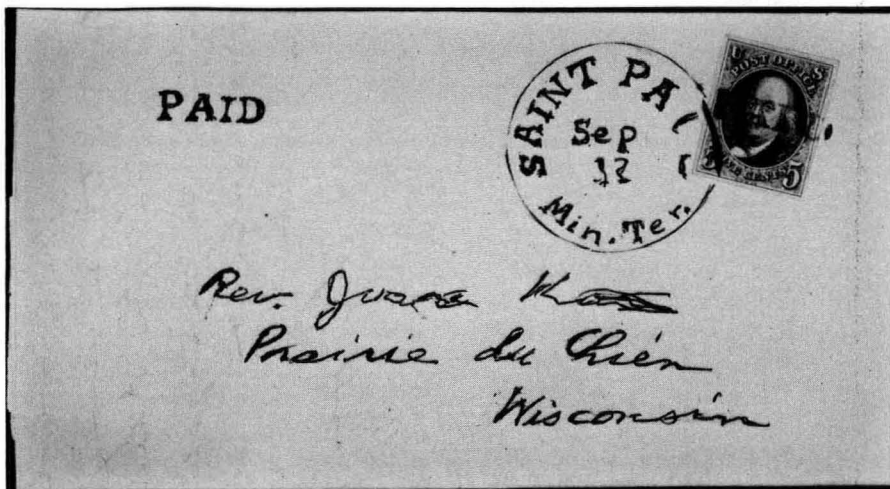 PAID
SAINT PA
Sep
Min. Ter.
U S
POST OFFICE
FIVE CENTS
5
Rev.
Prairie du Chien
Wisconsin